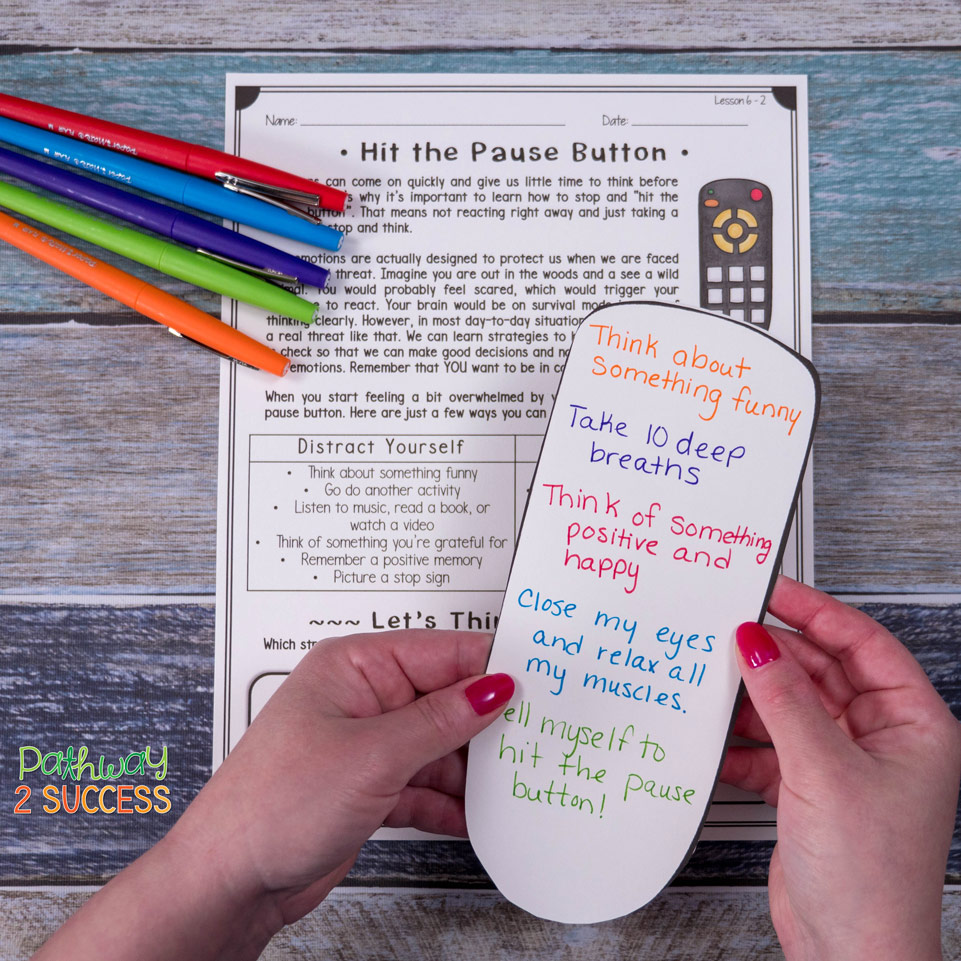 Lesson 6 - 2
Name: Date:
• Hit the Pause Button •
can come on quickly and give us little time to think before
why it's important to learn how to stop and "hit the
button". That means not reacting right away and just taking a
stop and think.
emotions are actually designed to protect us when we are faced
threat. Imagine you are out in the woods and a see a wild
You would probably feel scared, which would trigger your
to react. Your brain would be on survival
thinking clearly. However, in most day-to-day
a real threat like that. We can learn strategies to
check so that we can make good decisions and
emotions. Remember that YOU want to be in
When you start feeling a bit overwhelmed by
pause button. Here are just a few ways you can
Distract Yourself
• Think about something funny
• Go do another activity
• Listen to music, read a book, or
watch a video
• Think of something you're grateful for
• Remember a positive memory
• Picture a stop sign
~~~ Let's
Which
Think about
something funny
Take 10 deep
breaths
Think of something
positive and
happy
Close my eyes
and relax all
my muscles.
myself to
hit the pause
button!
Pathway
2 SUCCESS